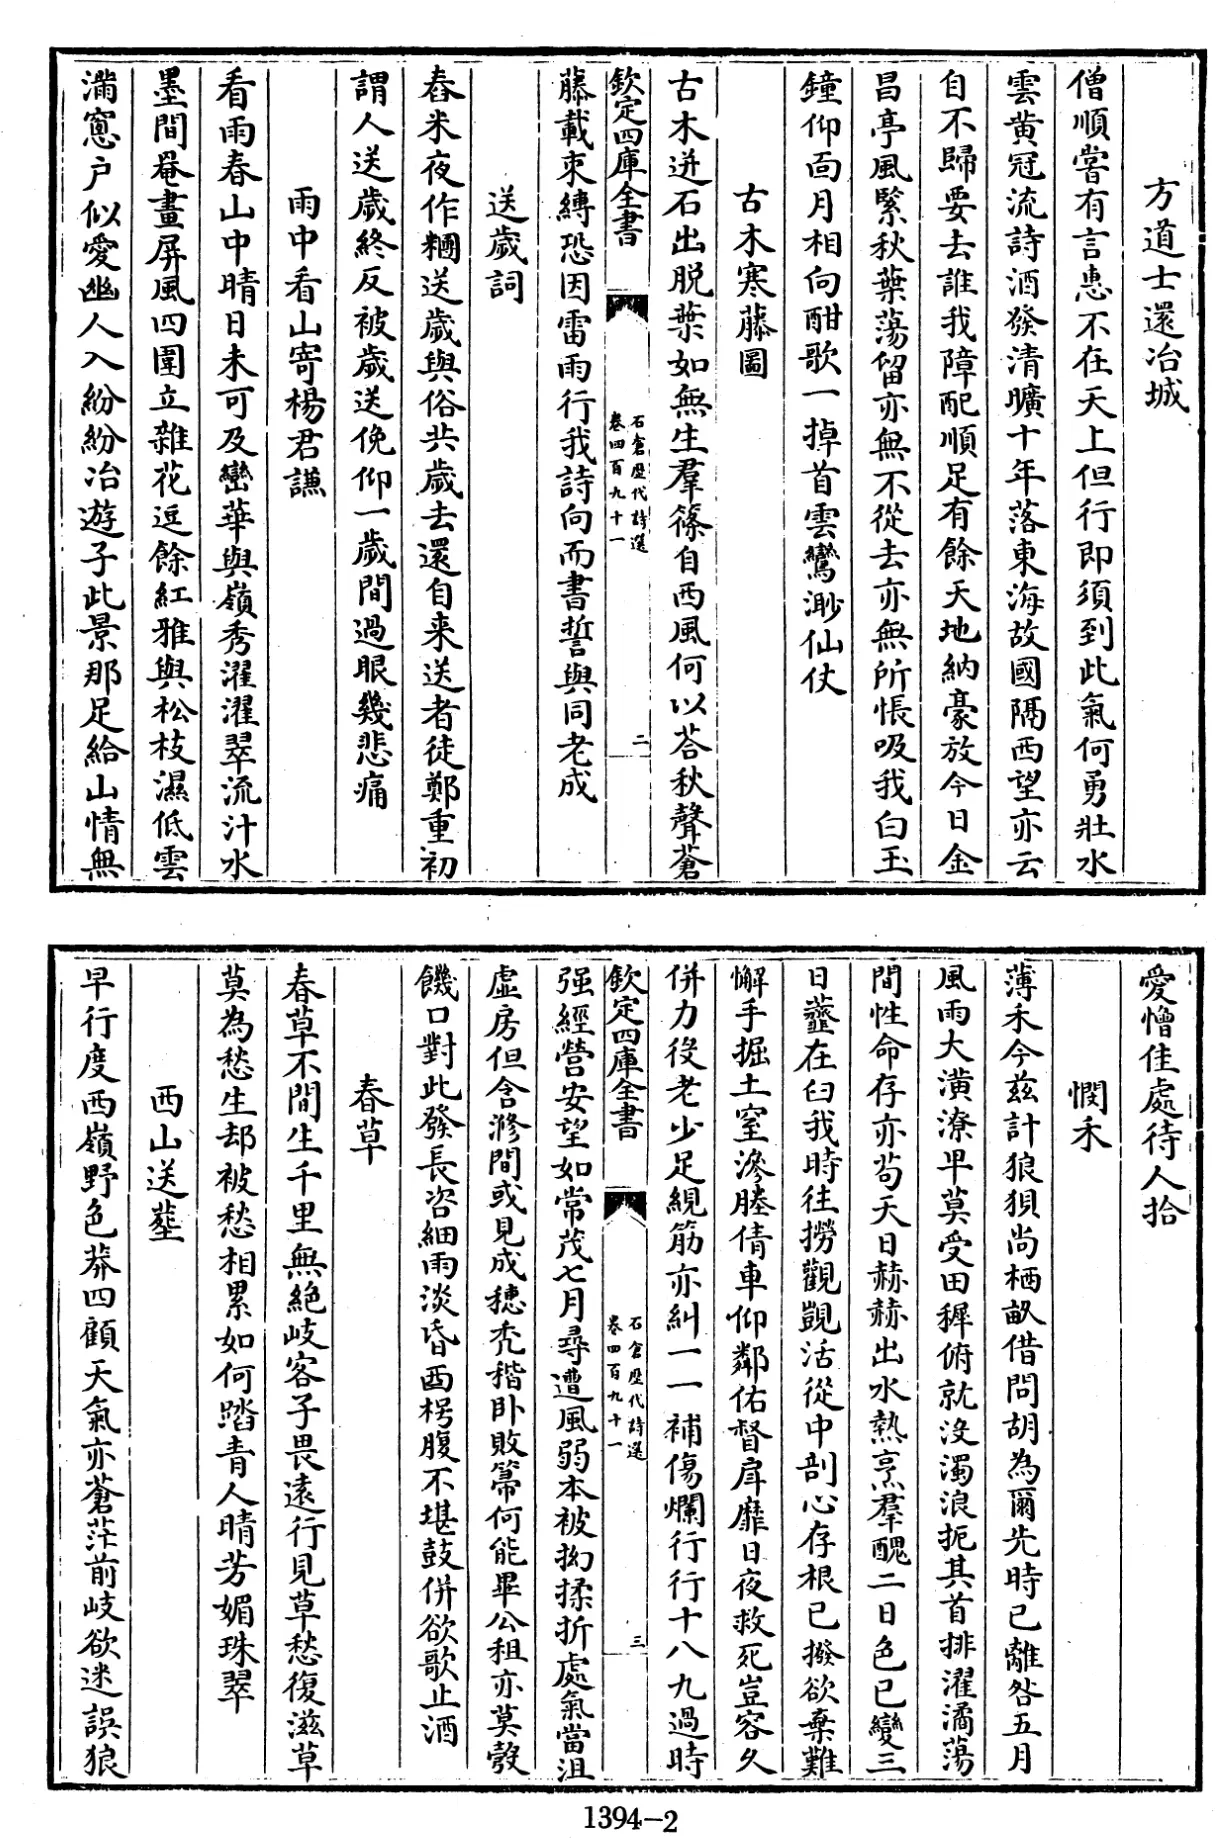 方道士還冶城
僧順嘗有言惠不在天上但行即須到此氣何勇壯水
雲黄冠流詩酒發清曠十年落東海故國隔西望亦云
自不歸要去誰我障配順足有餘天地納豪放今日金
昌亭風緊秋葉蕩留亦無不從去亦無所悵吸我白玉
鐘仰面月相向酣歌一掉首雲鸞渺仙仗
古木寒藤圖
古木迸石出脱葉如無生羣篠自西風何以荅秋聲蒼
欽定四庫全書
石倉歴代詩選
卷四百九十一
二
藤載束縛恐因雷雨行我詩向而書誓與同老成
送歲詞
舂米夜作糰送歲與俗共歲去還自来送者徒鄭重初
謂人送歲終反被歲送俛仰一歲間過眼幾悲痛
雨中看山寄楊君謙
看雨春山中晴日未可及巒華與嶺秀濯濯翠流汁水
墨間罨畫屏風四圍立雜花逗餘紅雅與松枝濕低雲
滿窻户似愛幽人入紛紛冶遊子此景那足給山情無
愛憎佳處待人拾
憫禾
薄禾今兹計狼狽尚栖畝借問胡為爾先時已離咎五月
風雨大潢潦早莫受田穉俯就沒濁浪扼其首排濯潏蕩
間性命存亦苟天日赫赫出水熱烹羣醜二日色已變三
日虀在臼我時往撈觀覬活從中剖心存根已撥欲棄難
懈手掘土窒滲塍倩車仰鄰佑督戽靡日夜救死豈容久
併力役老少足綥筋亦糾一一補傷爛行行十八九過時
欽定四庫全書
石倉歴代詩選
卷四百九十一
三
强經營安望如常茂七月尋遭風弱本被抝揉折處氣當沮
虚房但含滫間或見成穗秃稭卧敗箒何能畢公租亦莫彀
饑口對此發長咨細雨淡昏酉枵腹不堪鼓併欲歌止酒
春草
春草不間生千里無絶岐客子畏遠行見草愁復滋草
莫為愁生却被愁相累如何踏青人晴芳媚珠翠
西山送塟
早行度西嶺野色莽四顧天氣亦蒼茫前岐欲迷誤狼
1394-2